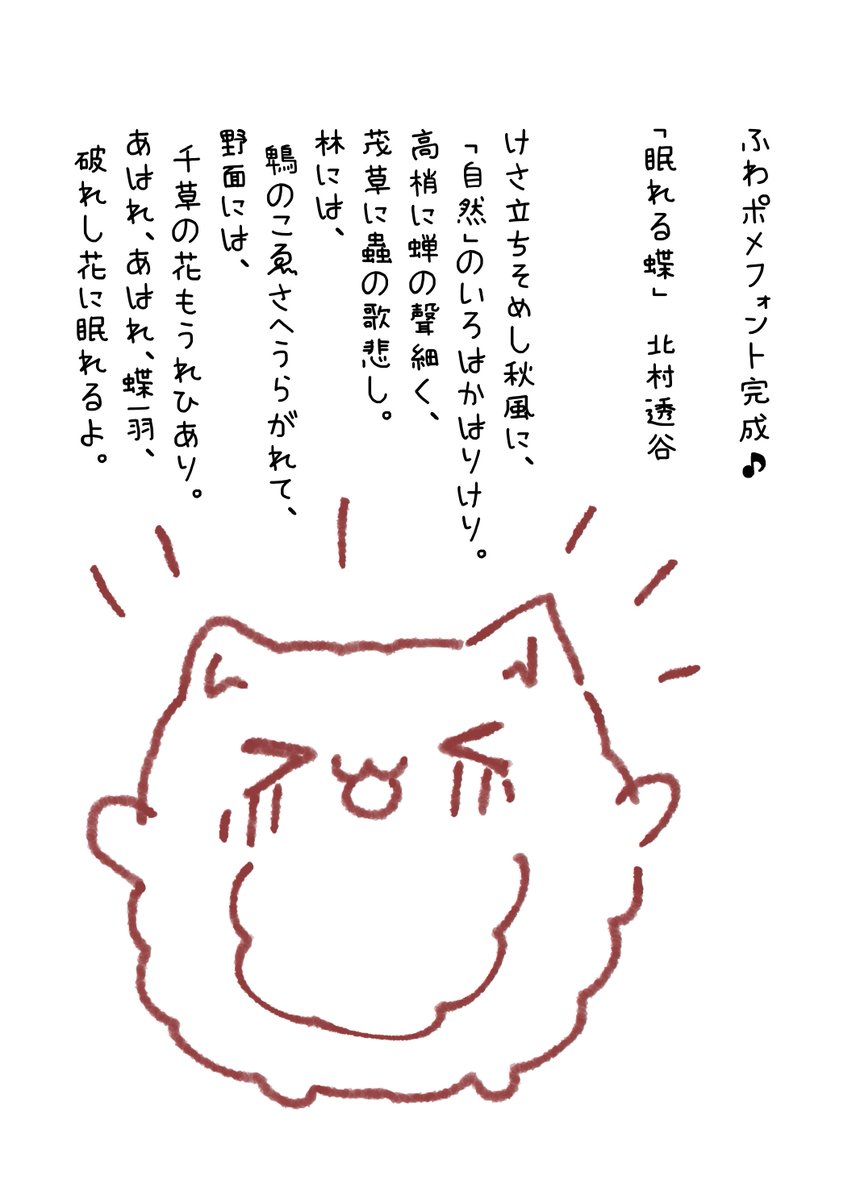 ふわポメフォント完成♪
「眠れる蝶」 北村透谷
けさ立ちそめし秋風に、
「自然」のいろはかはりけり。
高梢に蝉の聲細く、
茂草に蟲の歌悲し。
林には、
鵯のこゑさへうらがれて、
野面には、
千草の花もうれひあり。
あはれ、あはれ、蝶一羽、
破れし花に眠れるよ。